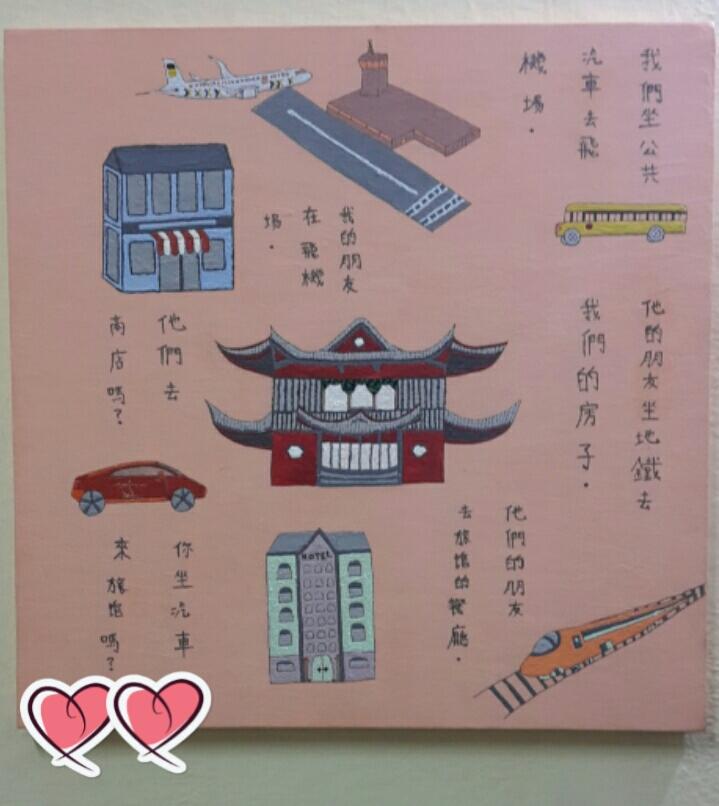 我們坐公共
汽車去飛
機場.
我的朋友
在飛機
場.
他們去
商店嗎?
他的朋友坐地鐵去
我們的房子.
你坐汽車
來旅馆嗎?
他們的朋友
去旅馆的餐廳.
HOTEL